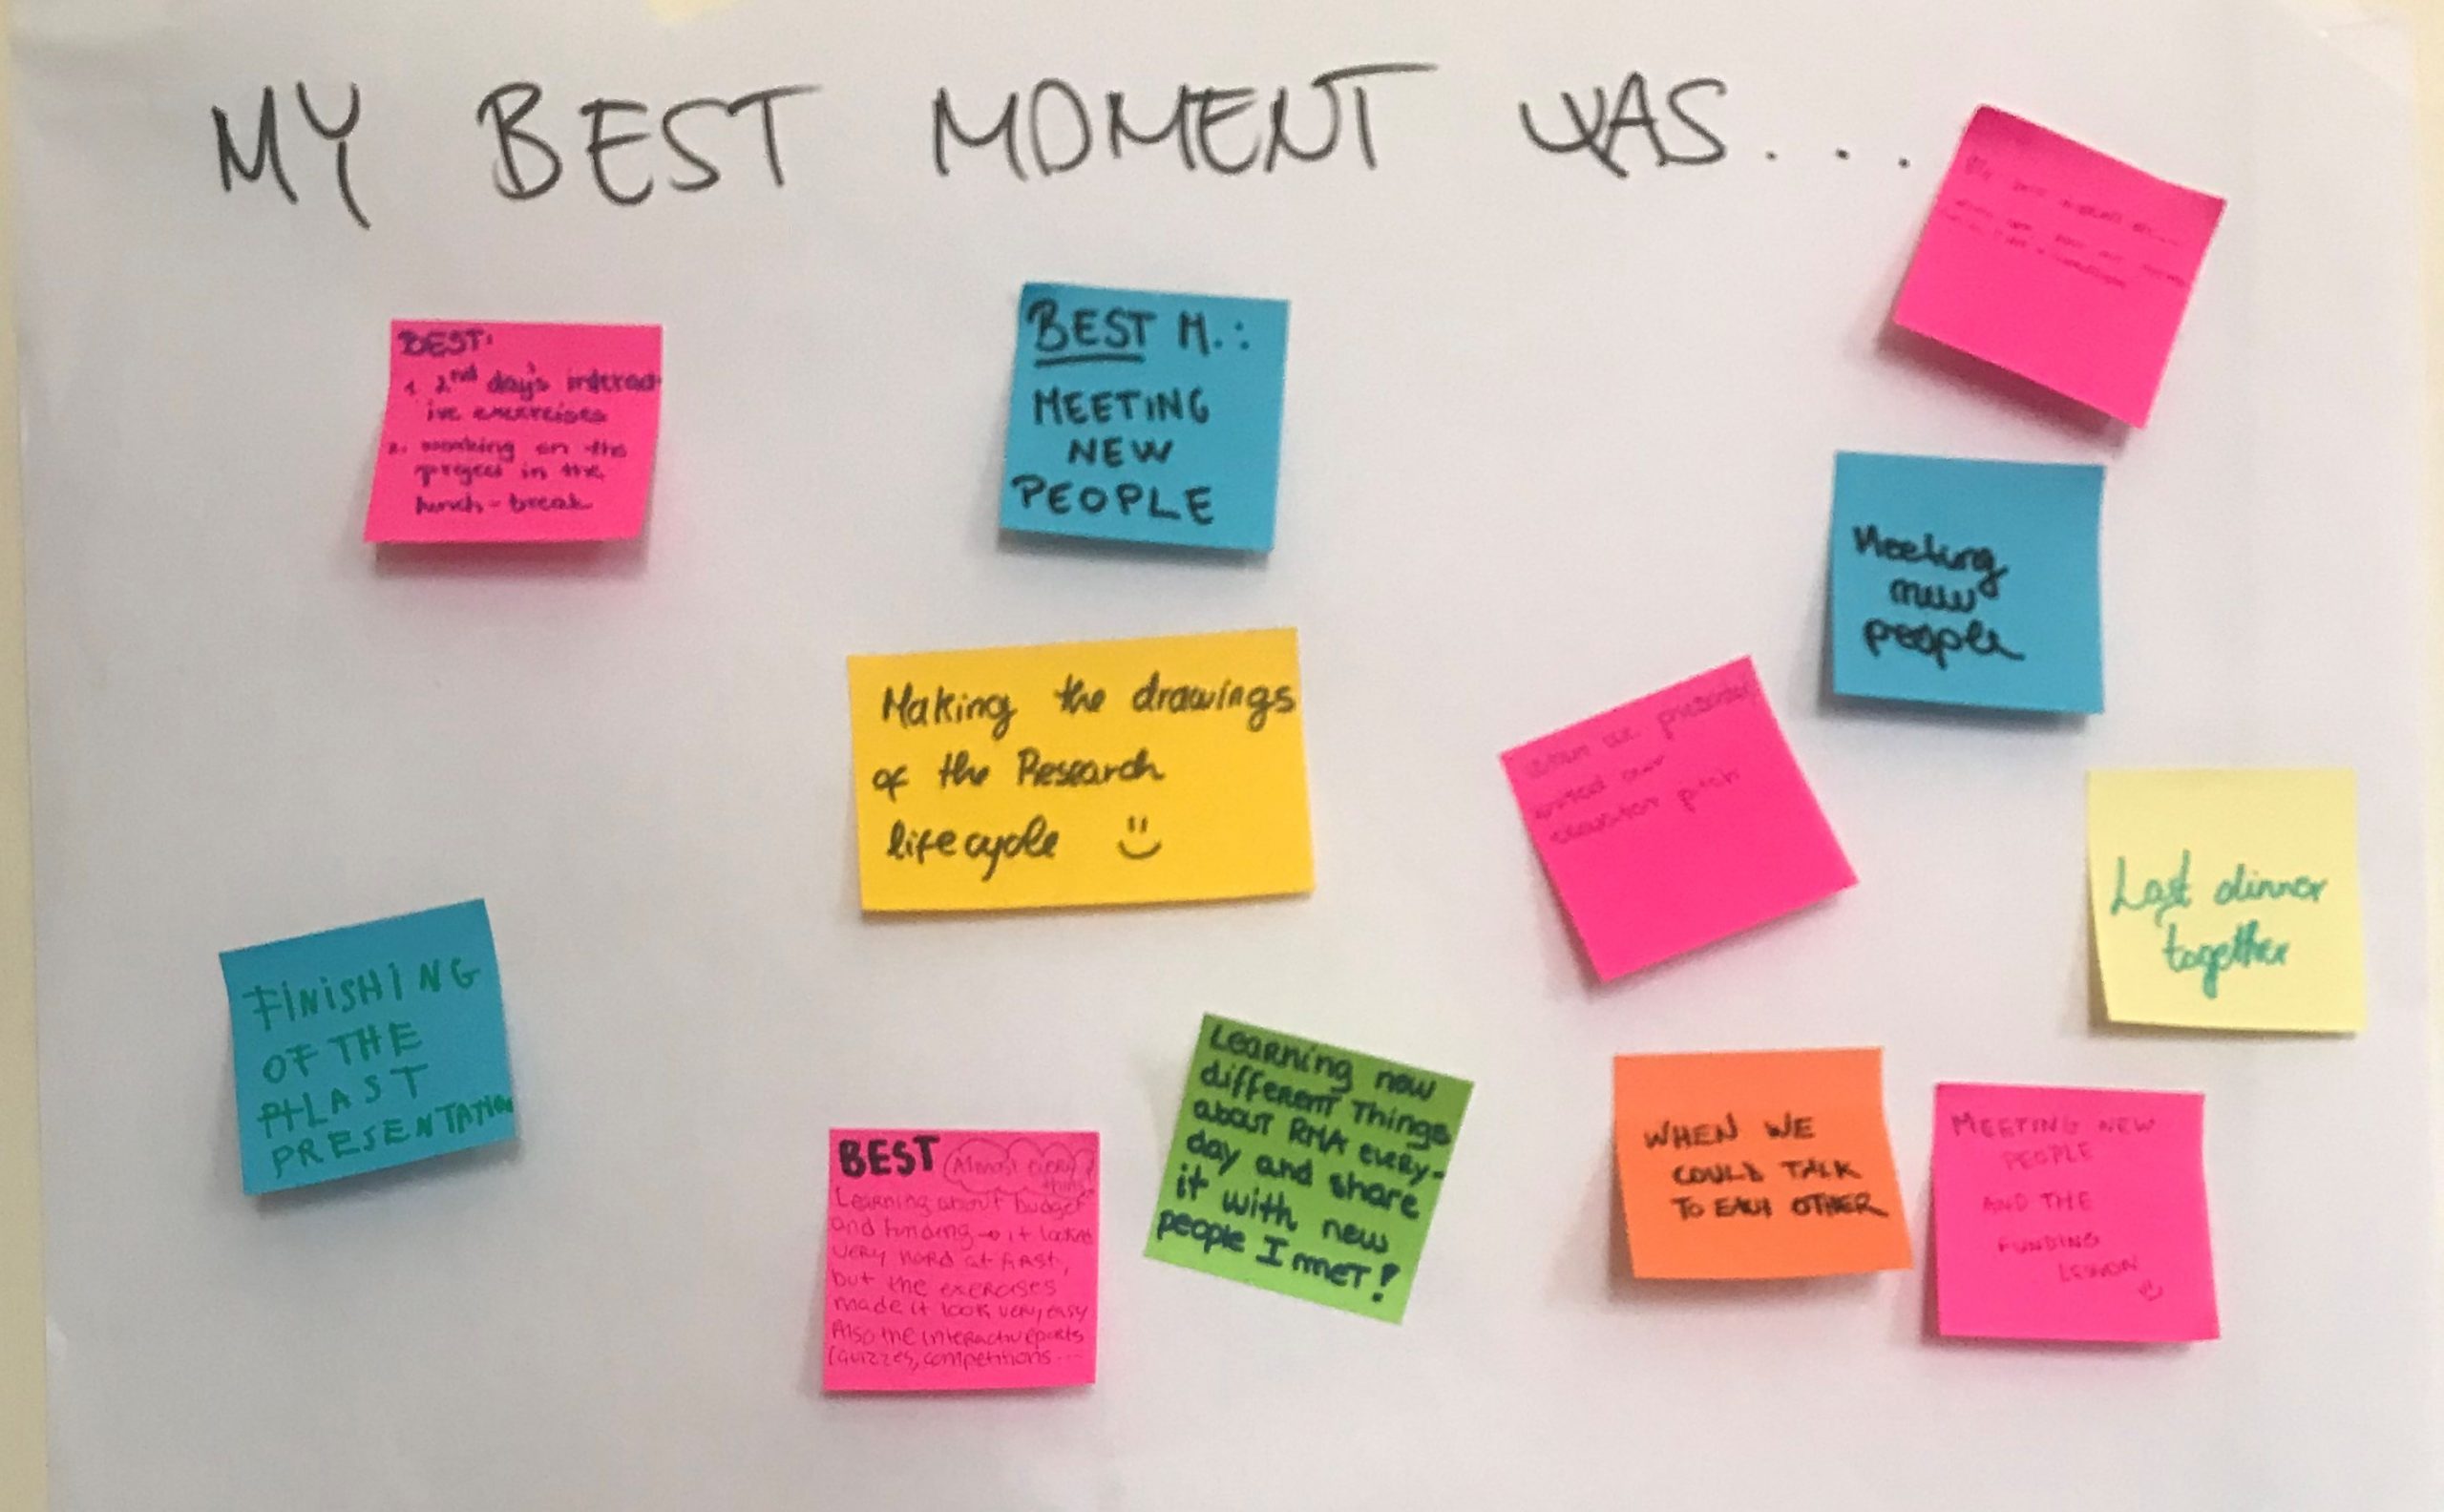 MY BEST MOMENT WAS...
BEST:
1. 2nd day's interact-
ive exercises
2. working on the
project in the
lunch-break
BEST M.:
MEETING
NEW
PEOPLE
My best moment
Meeting
new
people
Making the drawings
of the Research
lifecycle
when we presen-
our
elevator pitch
Last dinner
together
FINISHING
OF THE
LAST
PRESENTATION
BEST (Almost every
thing)
Learning about budget
and funding → it looked
very hard at first,
but the exercises
made it look very easy
Also the interactive parts
(quizzes, competitions...
Learning new
different Things
about RMA every-
day and share
it with new
people I met!
WHEN WE
COULD TALK
TO EACH OTHER
MEETING NEW
PEOPLE
AND THE
FUNDING
LESSON